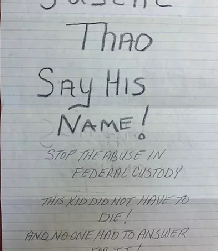 Thao
Say His
Name!
STOP THE ABUSE IN
FEDERAL CUSTODY
THIS KID DID NOT HAVE TO
DIE!
AND NO ONE HAD TO ANSWER